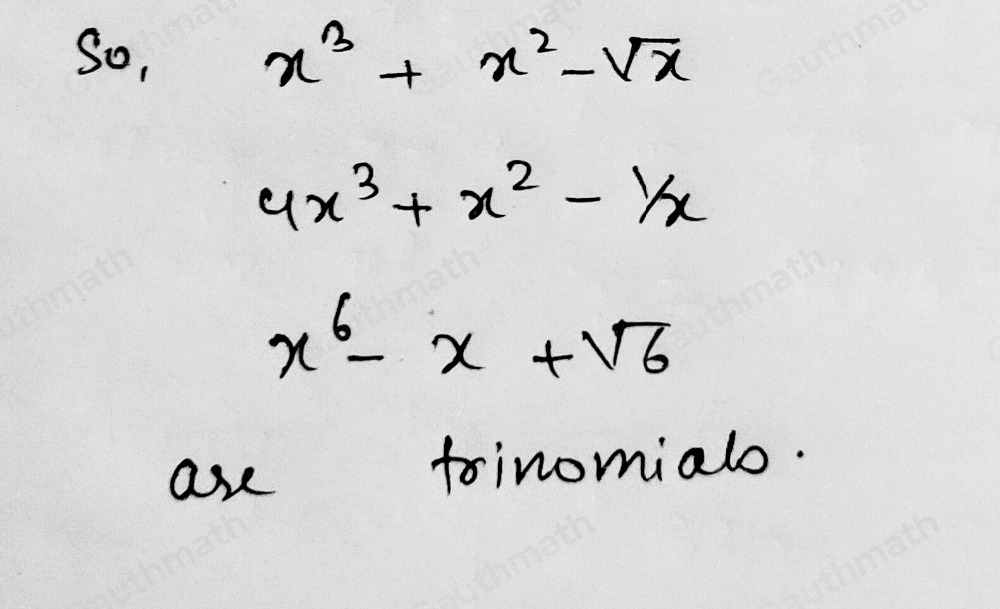 So, x³ + x² - √x
4x³ + x² - 1/x
x⁶ - x + √6
are trinomials.